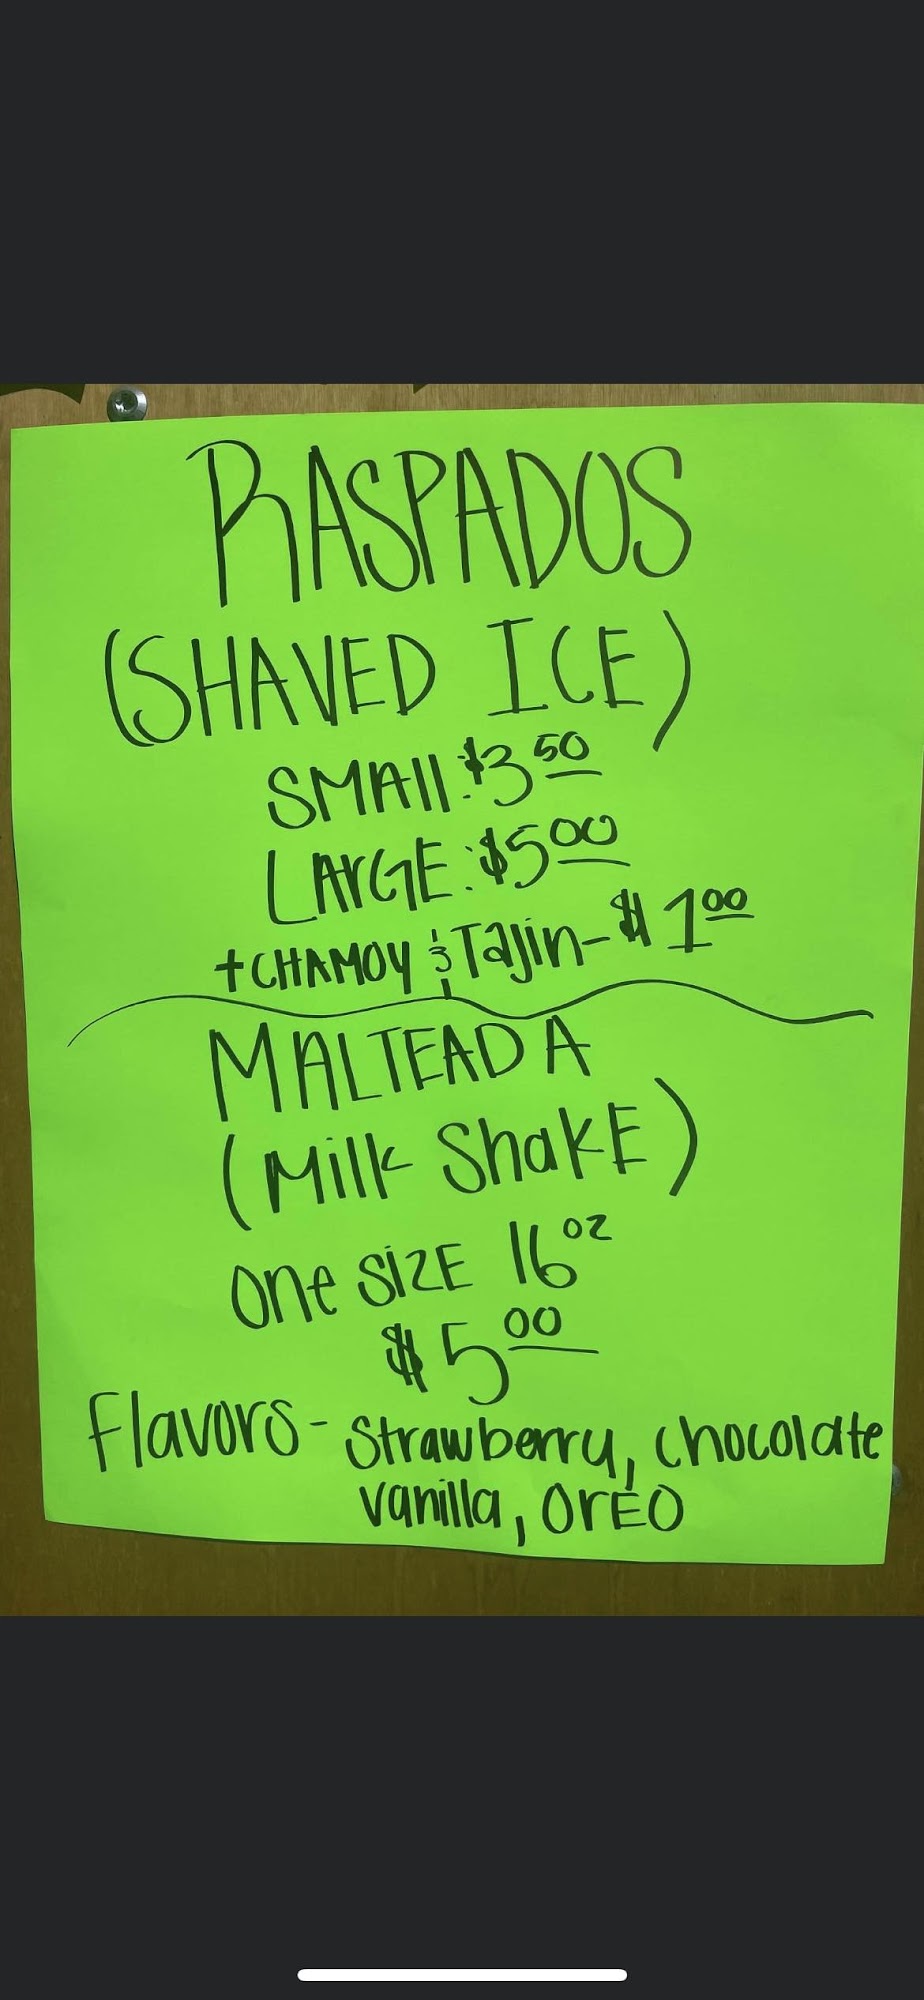 RASPADOS
(SHAVED ICE)
SMAll: $3 50
LARGE: $5 00
+CHAMOY & Tajin- $1 00
MALTEADA
(Milk ShakE)
one SiZE 16 oz
$5 00
Flavors- Strawberry, chocolate
vanilla, OrEO